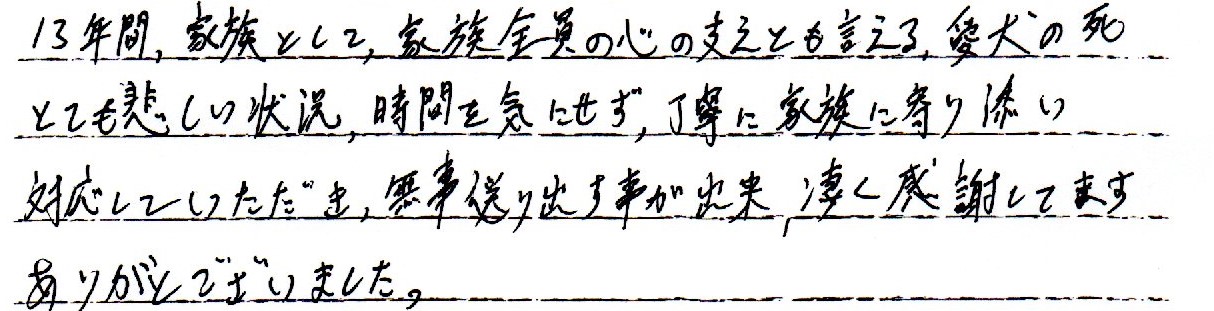 13年間,家族として,家族全員の心の支えとも言える,愛犬の死
とても悲しい状況,時間を気にせず,丁寧に家族に寄り添い
対応していただき,無事送り出す事が出来,凄く感謝してます
ありがとございました。